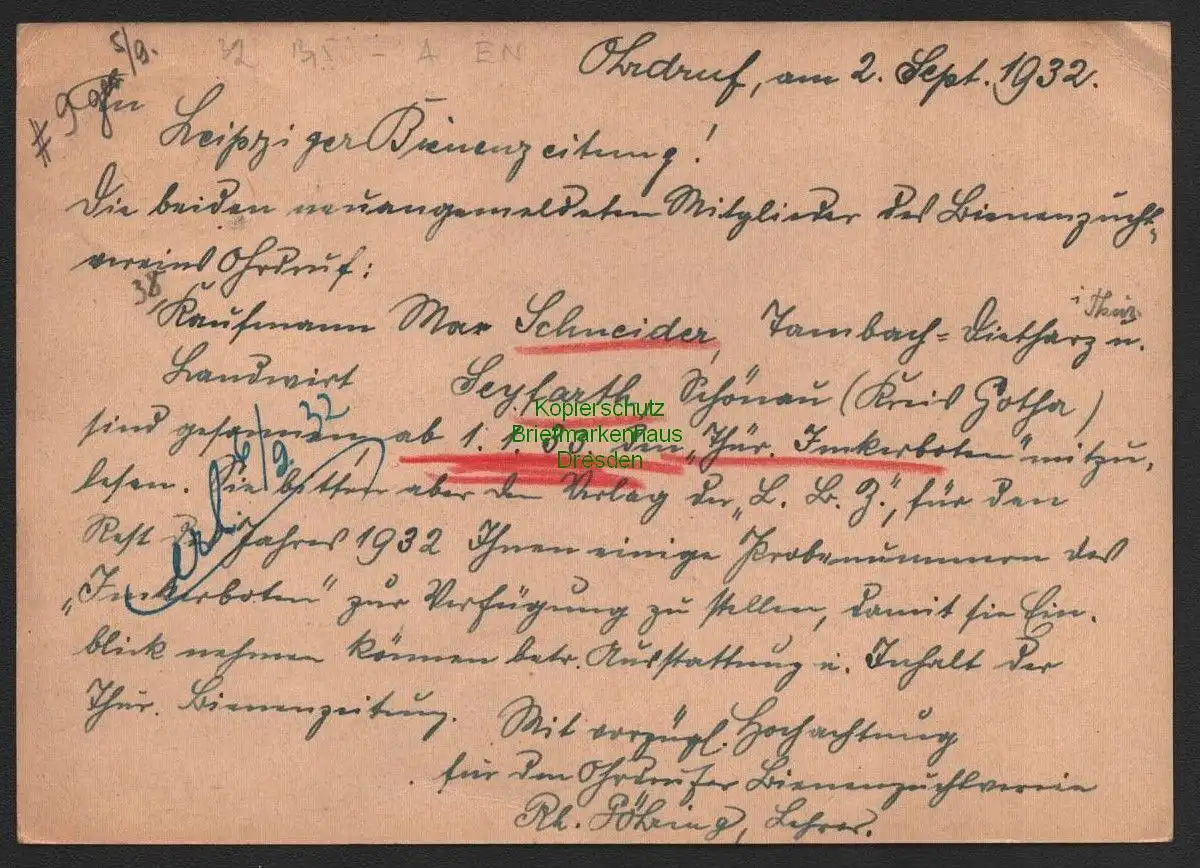 5/9.
32 A EN
Ohrdruf, am 2. Sept. 1932.
An
Leipziger Bienenzeitung!
Die beiden neuangemeldeten Mitglieder des Bienenzucht-
vereins Ohrdruf:
38
i Thür.
Kaufmann Max Schneider, Tambach-Dietharz u.
Landwirt Seyfarth Schönau (Kreis Gotha)
sind gesonnen, ab 1. 1. 33 den „Thür. Imkerboten" mitzu-
lesen. Sie bitten aber den Verlag der „L. B. Z.", für den
Rest des Jahres 1932 Ihnen einige Probenummern des
„Imkerboten" zur Verfügung zu stellen, damit sie Ein-
blick nehmen können betr. Ausstattung u. Inhalt der
Thür. Bienenzeitung.
Mit vorzügl. Hochachtung
für den Ohrdrufer Bienenzuchtverein
Rh. Föhring, Lehrer.
erl. /9. 32
Kopierschutz
Briefmarkenhaus
Dresden